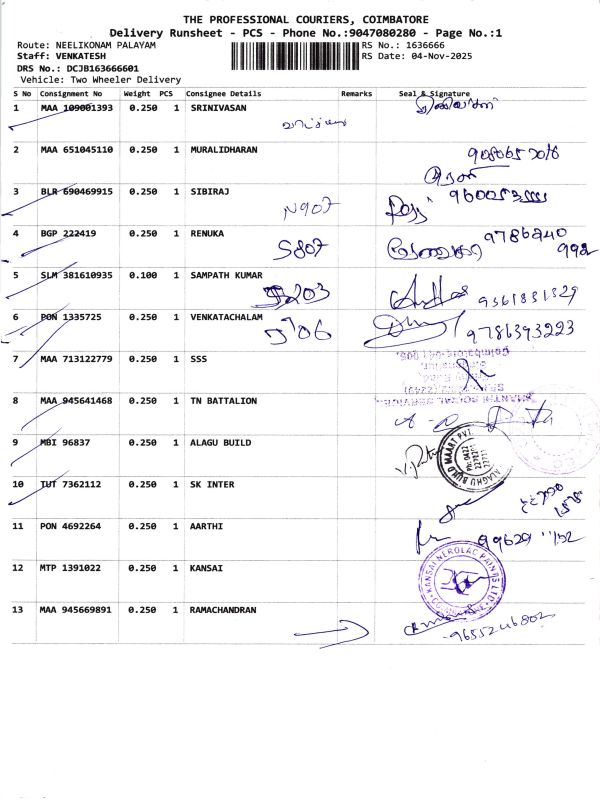 THE PROFESSIONAL COURIERS, COIMBATORE
Delivery Runsheet - PCS - Phone No.:9047080280 - Page No.:1
Route: NEELIKONAM PALAYAM RS No.: 1636666
Staff: VENKATESH RS Date: 04-Nov-2025
DRS No.: DCJB163666601
Vehicle: Two Wheeler Delivery
S No Consignment No Weight PCS Consignee Details Remarks Seal & Signature
1 MAA 109001393 0.250 1 SRINIVASAN
2 MAA 651045110 0.250 1 MURALIDHARAN
3 BLR 690469915 0.250 1 SIBIRAJ
N907
4 BGP 222419 0.250 1 RENUKA
S807 9786240
992
5 SLM 381610935 0.100 1 SAMPATH KUMAR
203 9361831329
6 PON 1335725 0.250 1 VENKATACHALAM
D706 9786393223
7 MAA 713122779 0.250 1 SSS
8 MAA 945641468 0.250 1 TN BATTALION
9 MBI 96837 0.250 1 ALAGU BUILD
ALAGHU BUILD MAART PVT.
10 TUT 7362112 0.250 1 SK INTER
11 PON 4692264 0.250 1 AARTHI
12 MTP 1391022 0.250 1 KANSAI
KANSAI NEROLAC PAINTS LTD
13 MAA 945669891 0.250 1 RAMACHANDRAN
9655246802